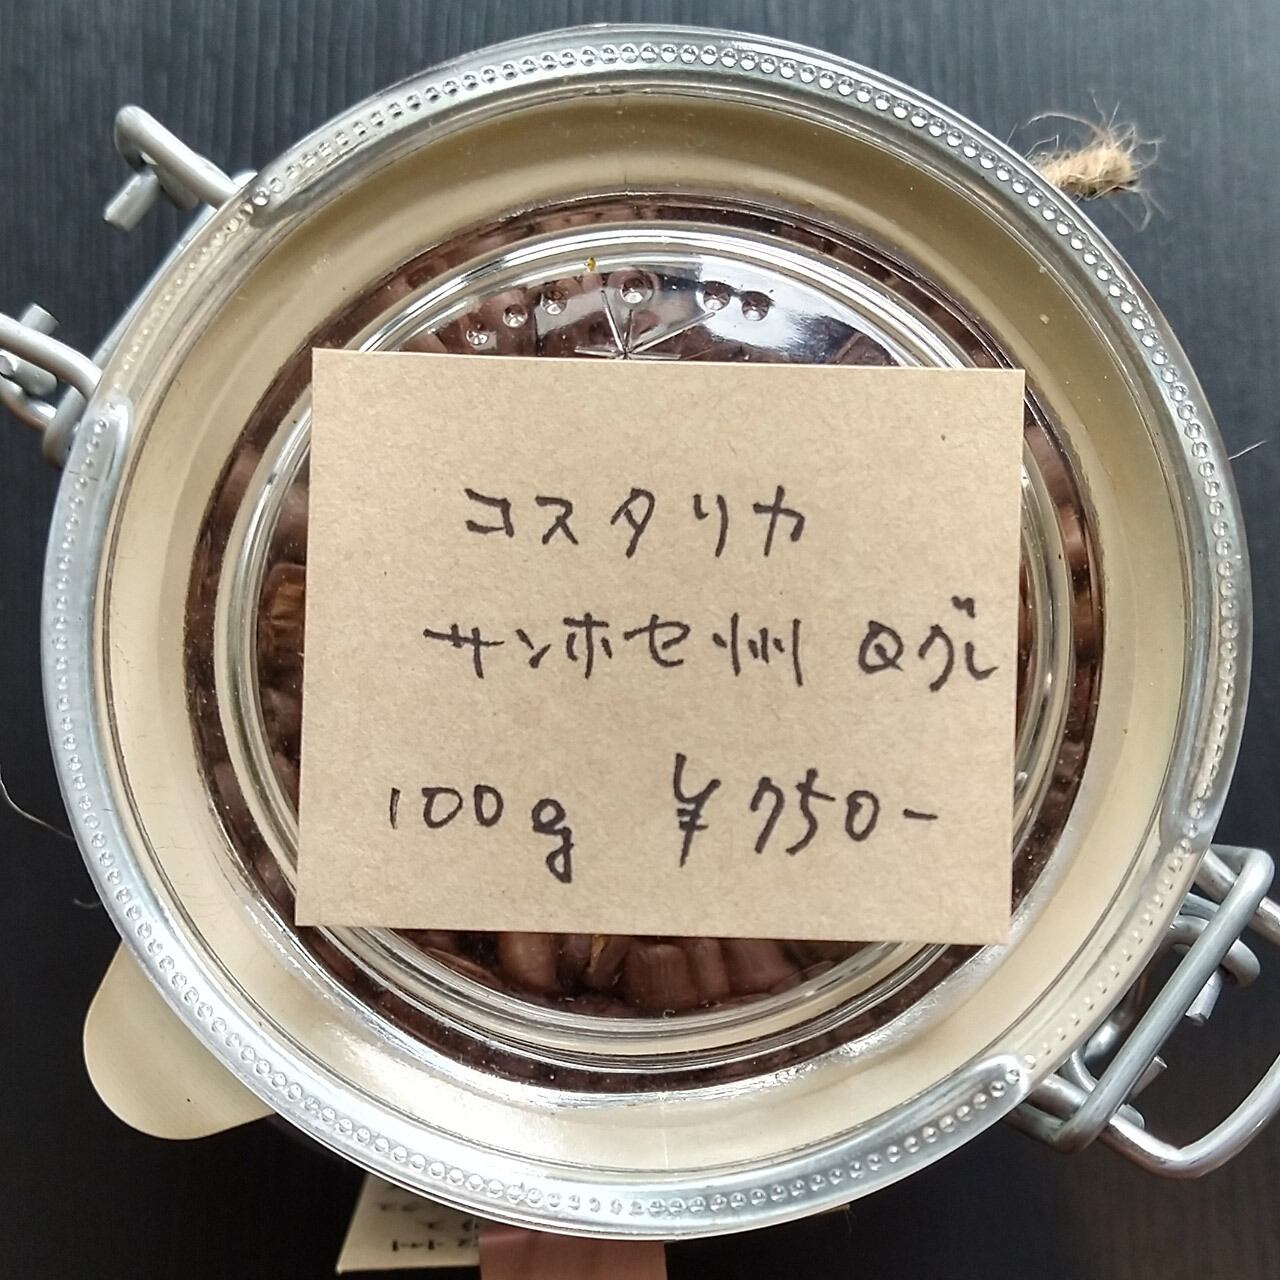 コスタリカ
サンホセ州 Qグレ
100g ¥750-